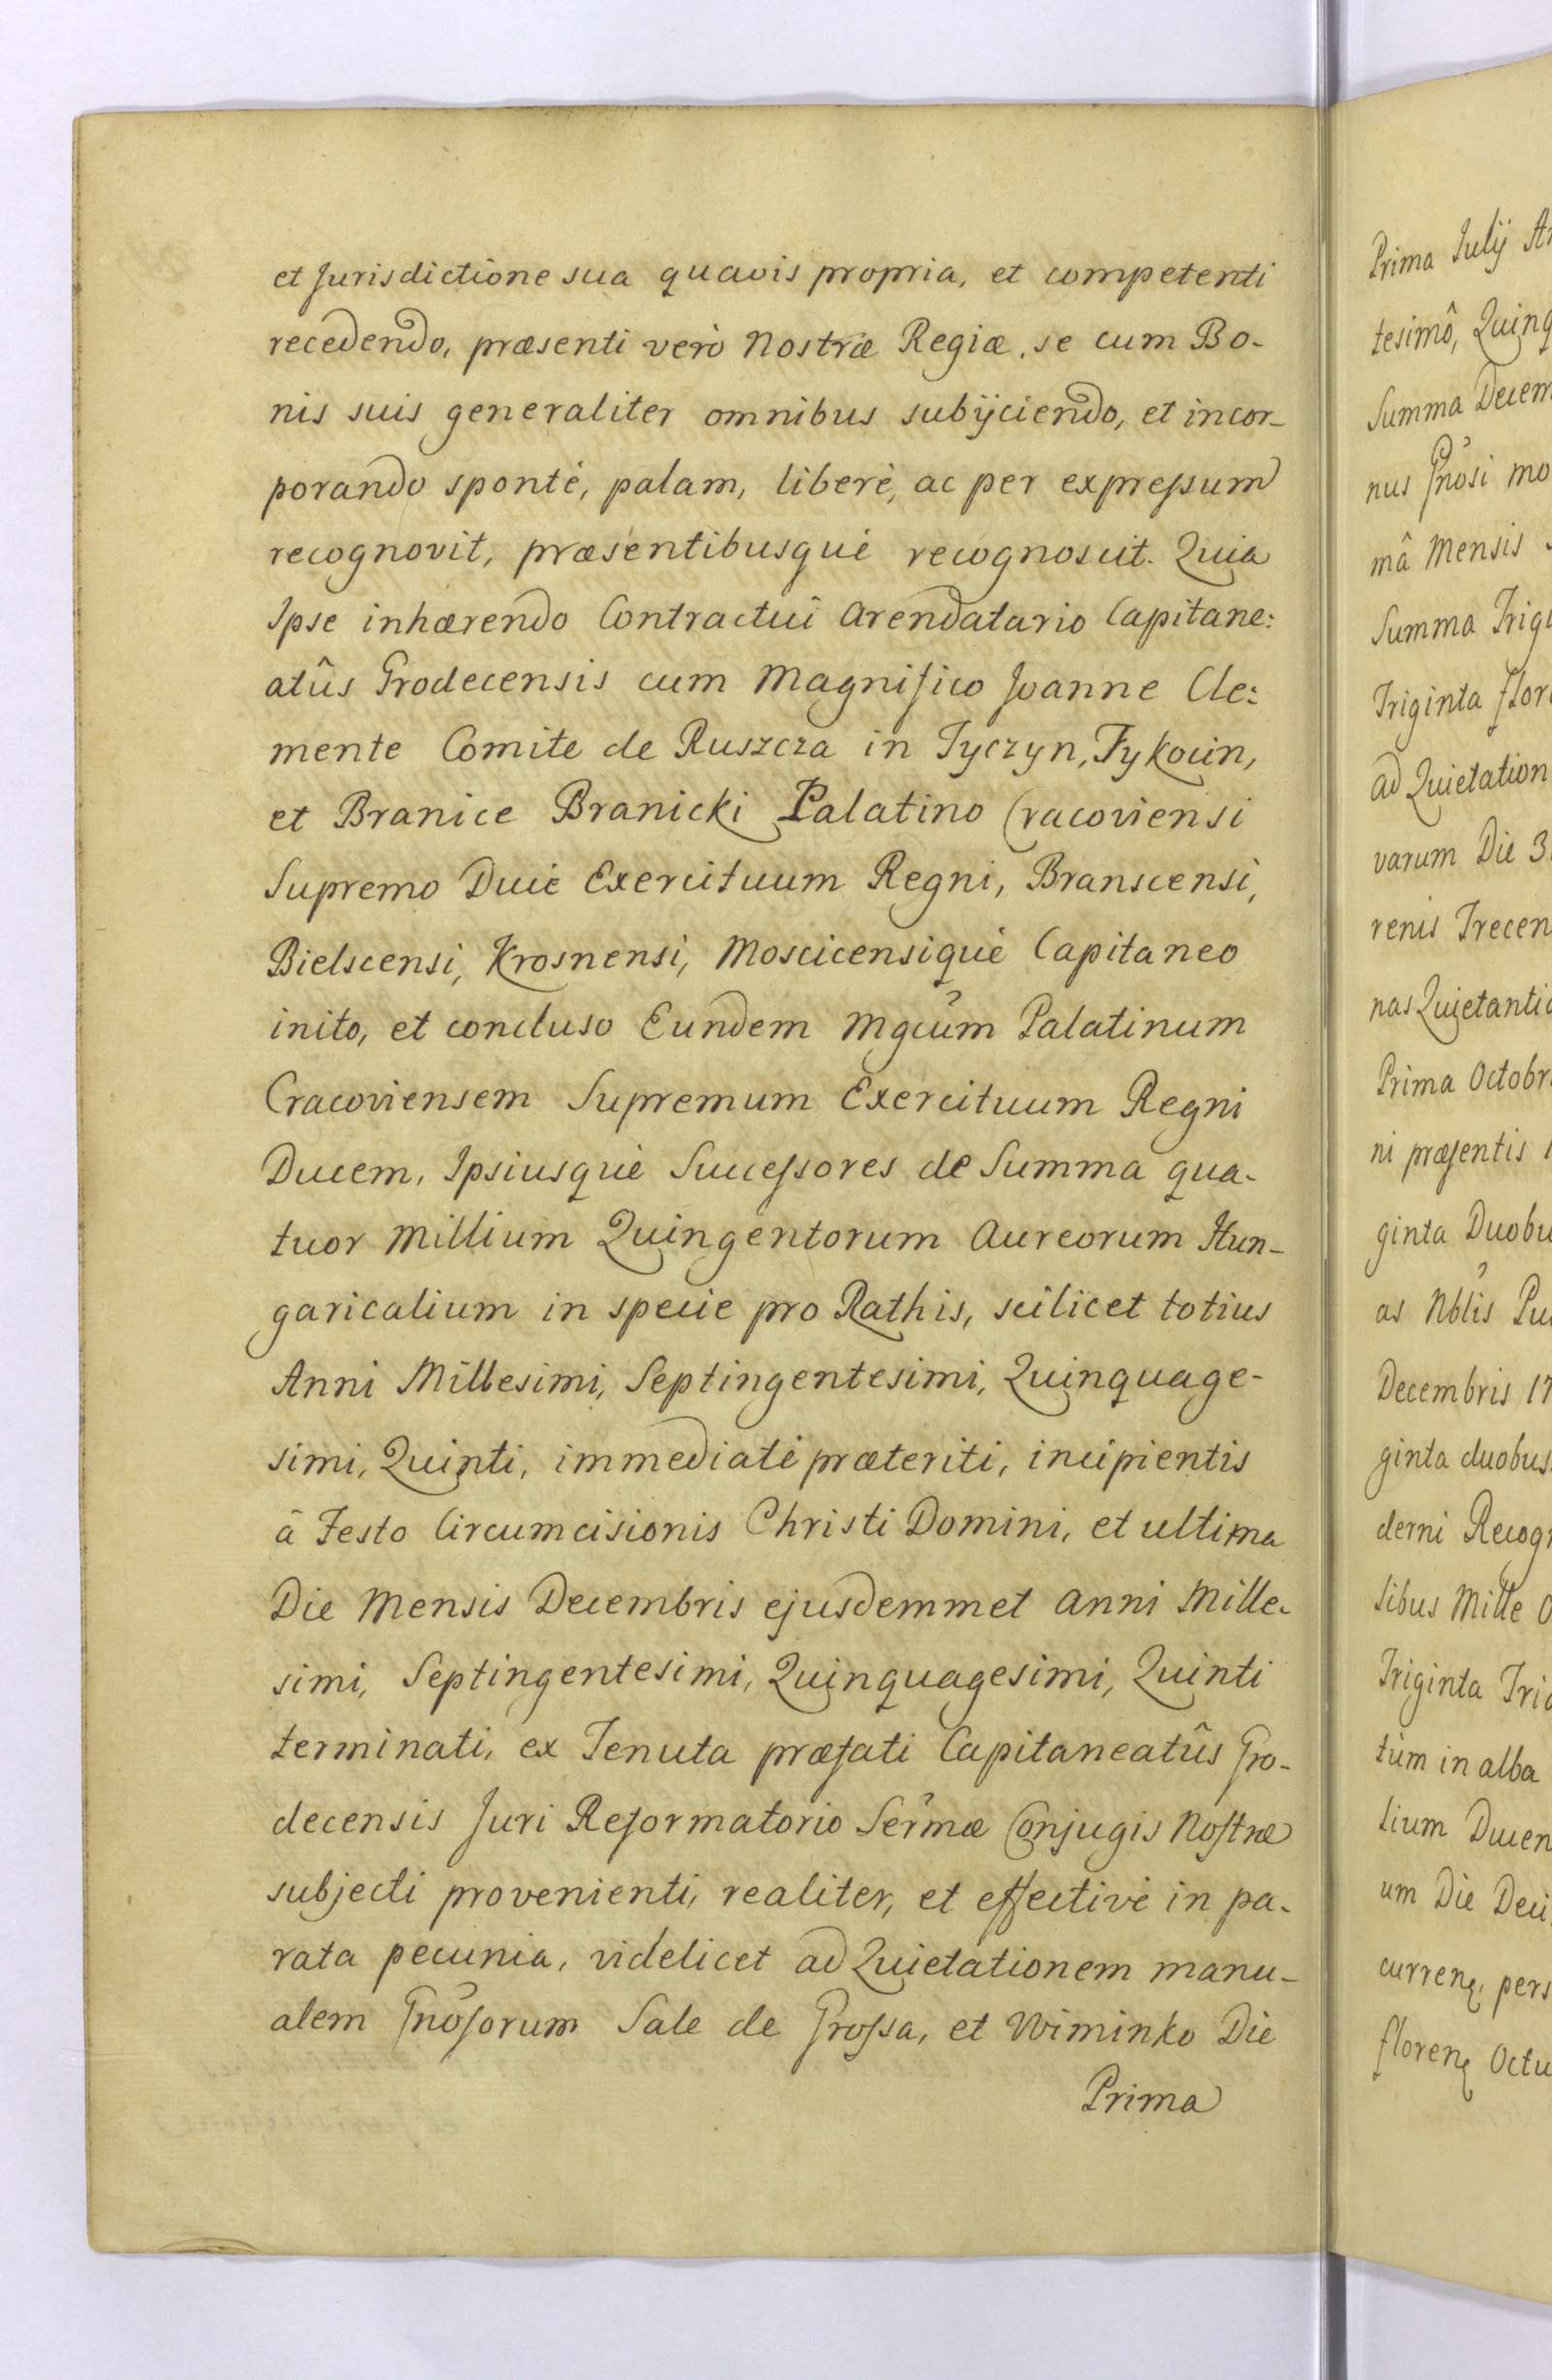 et Jurisdictione sua quavis propria, et competenti
recedendo, præsenti verò Nostræ Regiæ, se cum Bo-
nis suis generaliter omnibus subijciendo, et incor-
porando spontè, palam, liberè, ac per expreſsum
recognovit, præsentibusquè recognoscit. Quia
Ipse inhærendo Contractui Arendatario Capitane:
atûs Grodecensis cum Magnifico Joanne Cle:
mente Comite de Ruszcza in Tyczyn, Tykocin,
et Branice Branicki Palatino Cracoviensi
Supremo Duce Exercituum Regni, Branscensi,
Bielscensi, Krosnensi, Moscicensiquè Capitaneo
inito, et concluso Eundem Mgcum Palatinum
Cracoviensem Supremum Exercituum Regni
Ducem, Ipsiusquè Succeſsores de Summa qua-
tuor Millium Quingentorum Aureorum Hun-
garicalium in specie pro Rathis, scilicet totius
Anni Millesimi, Septingentesimi, Quinquage-
simi, Quinti, immediatè præteriti, incipientis
â Festo Circumcisionis Christi Domini, et ultima
Die Mensis Decembris ejusdemmet Anni Mille-
simi, Septingentesimi, Quinquagesimi, Quinti
terminati, ex Tenuta præfati Capitaneatûs Gro-
decensis Juri Reformatorio Sermæ Conjugis Noſtræ
subjecti provenienti, realiter, et effectivè in pa-
rata pecunia, videlicet ad Quietationem manu-
alem Gnoſorum Sale de Groſsa, et Wiminko Die
Prima
Prima Julij
tesimô,
Summa
nus Gnosi
mâ Mensis
Summa
Triginta
ad
varum Die 3
renis
nas
Prima
ni præſentis
ginta
as Nblis
Decembris 17
ginta duobus
derni
libus Mille
Triginta
tum in alba
lium
um Die
curren, pers
floren